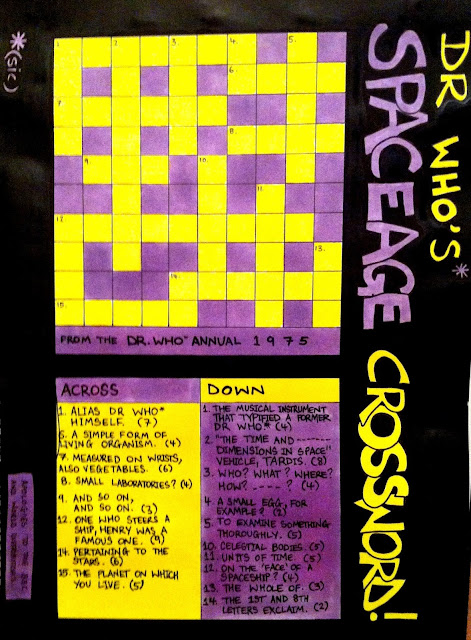 DR WHO'S*
SPACEAGE
CROSSWORD!
*(sic)
1. 2. 3. 4. 5.
6.
7.
8.
9. 10.
11.
12.
13.
14.
15.
FROM THE DR. WHO* ANNUAL 1975
ACROSS
1. ALIAS DR WHO*
HIMSELF. (7)
6. A SIMPLE FORM OF
LIVING ORGANISM. (4)
7. MEASURED ON WRISTS,
ALSO VEGETABLES. (6)
8. SMALL LABORATORIES? (4)
9. AND SO ON,
AND SO ON. (3)
12. ONE WHO STEERS A
SHIP, HENRY WAS A
FAMOUS ONE. (9)
14. PERTAINING TO THE
STARS. (6)
15. THE PLANET ON WHICH
YOU LIVE. (5)
DOWN
1. THE MUSICAL INSTRUMENT
THAT TYPIFIED A FORMER
DR WHO.* (4)
2. "THE TIME AND --------
DIMENSIONS IN SPACE"
VEHICLE, TARDIS. (8)
3. WHO? WHAT? WHERE?
HOW? ---- ? (4)
4. A SMALL EGG, FOR
EXAMPLE?
5. TO EXAMINE SOMETHING
THOROUGHLY. (5)
10. CELESTIAL BODIES. (5)
11. UNITS OF TIME. (5)
12. ON THE 'FACE' OF A
SPACESHIP? (4)
13. THE WHOLE OF. (3)
14. THE 1ST AND 8TH
LETTERS EXCLAIM. (2)
APOLOGIES TO THE BBC